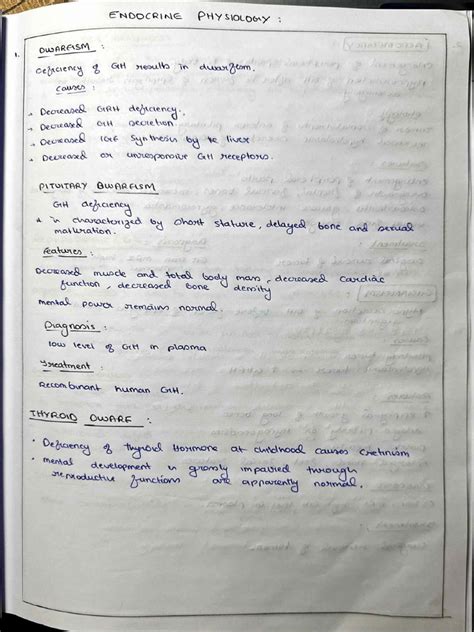 ENDOCRINE PHYSIOLOGY :
1.
DWARFISM :
Deficiency of GH results in dwarfism.
Causes :
Decreased GRH deficiency.
Decreased GH secretion
Decreased IGF Synthesis by te liver
Decreased or unresponsive GH receptors.
PITUITARY DWARFISM
GH deficiency
is characterized by short stature, delayed bone and sexual
maturation.
Features :
Decreased muscle and total body mass, decreased cardiac
function, decreased bone density
mental power remains normal.
Diagnosis :
low level of GH in plasma
Treatment :
Recombinant human GH.
THYROID DWARF :
• Deficiency of thyroid Hormone at childhood causes Cretinism
• mental development is grossly impaired through
reproductive functions are apparently normal.